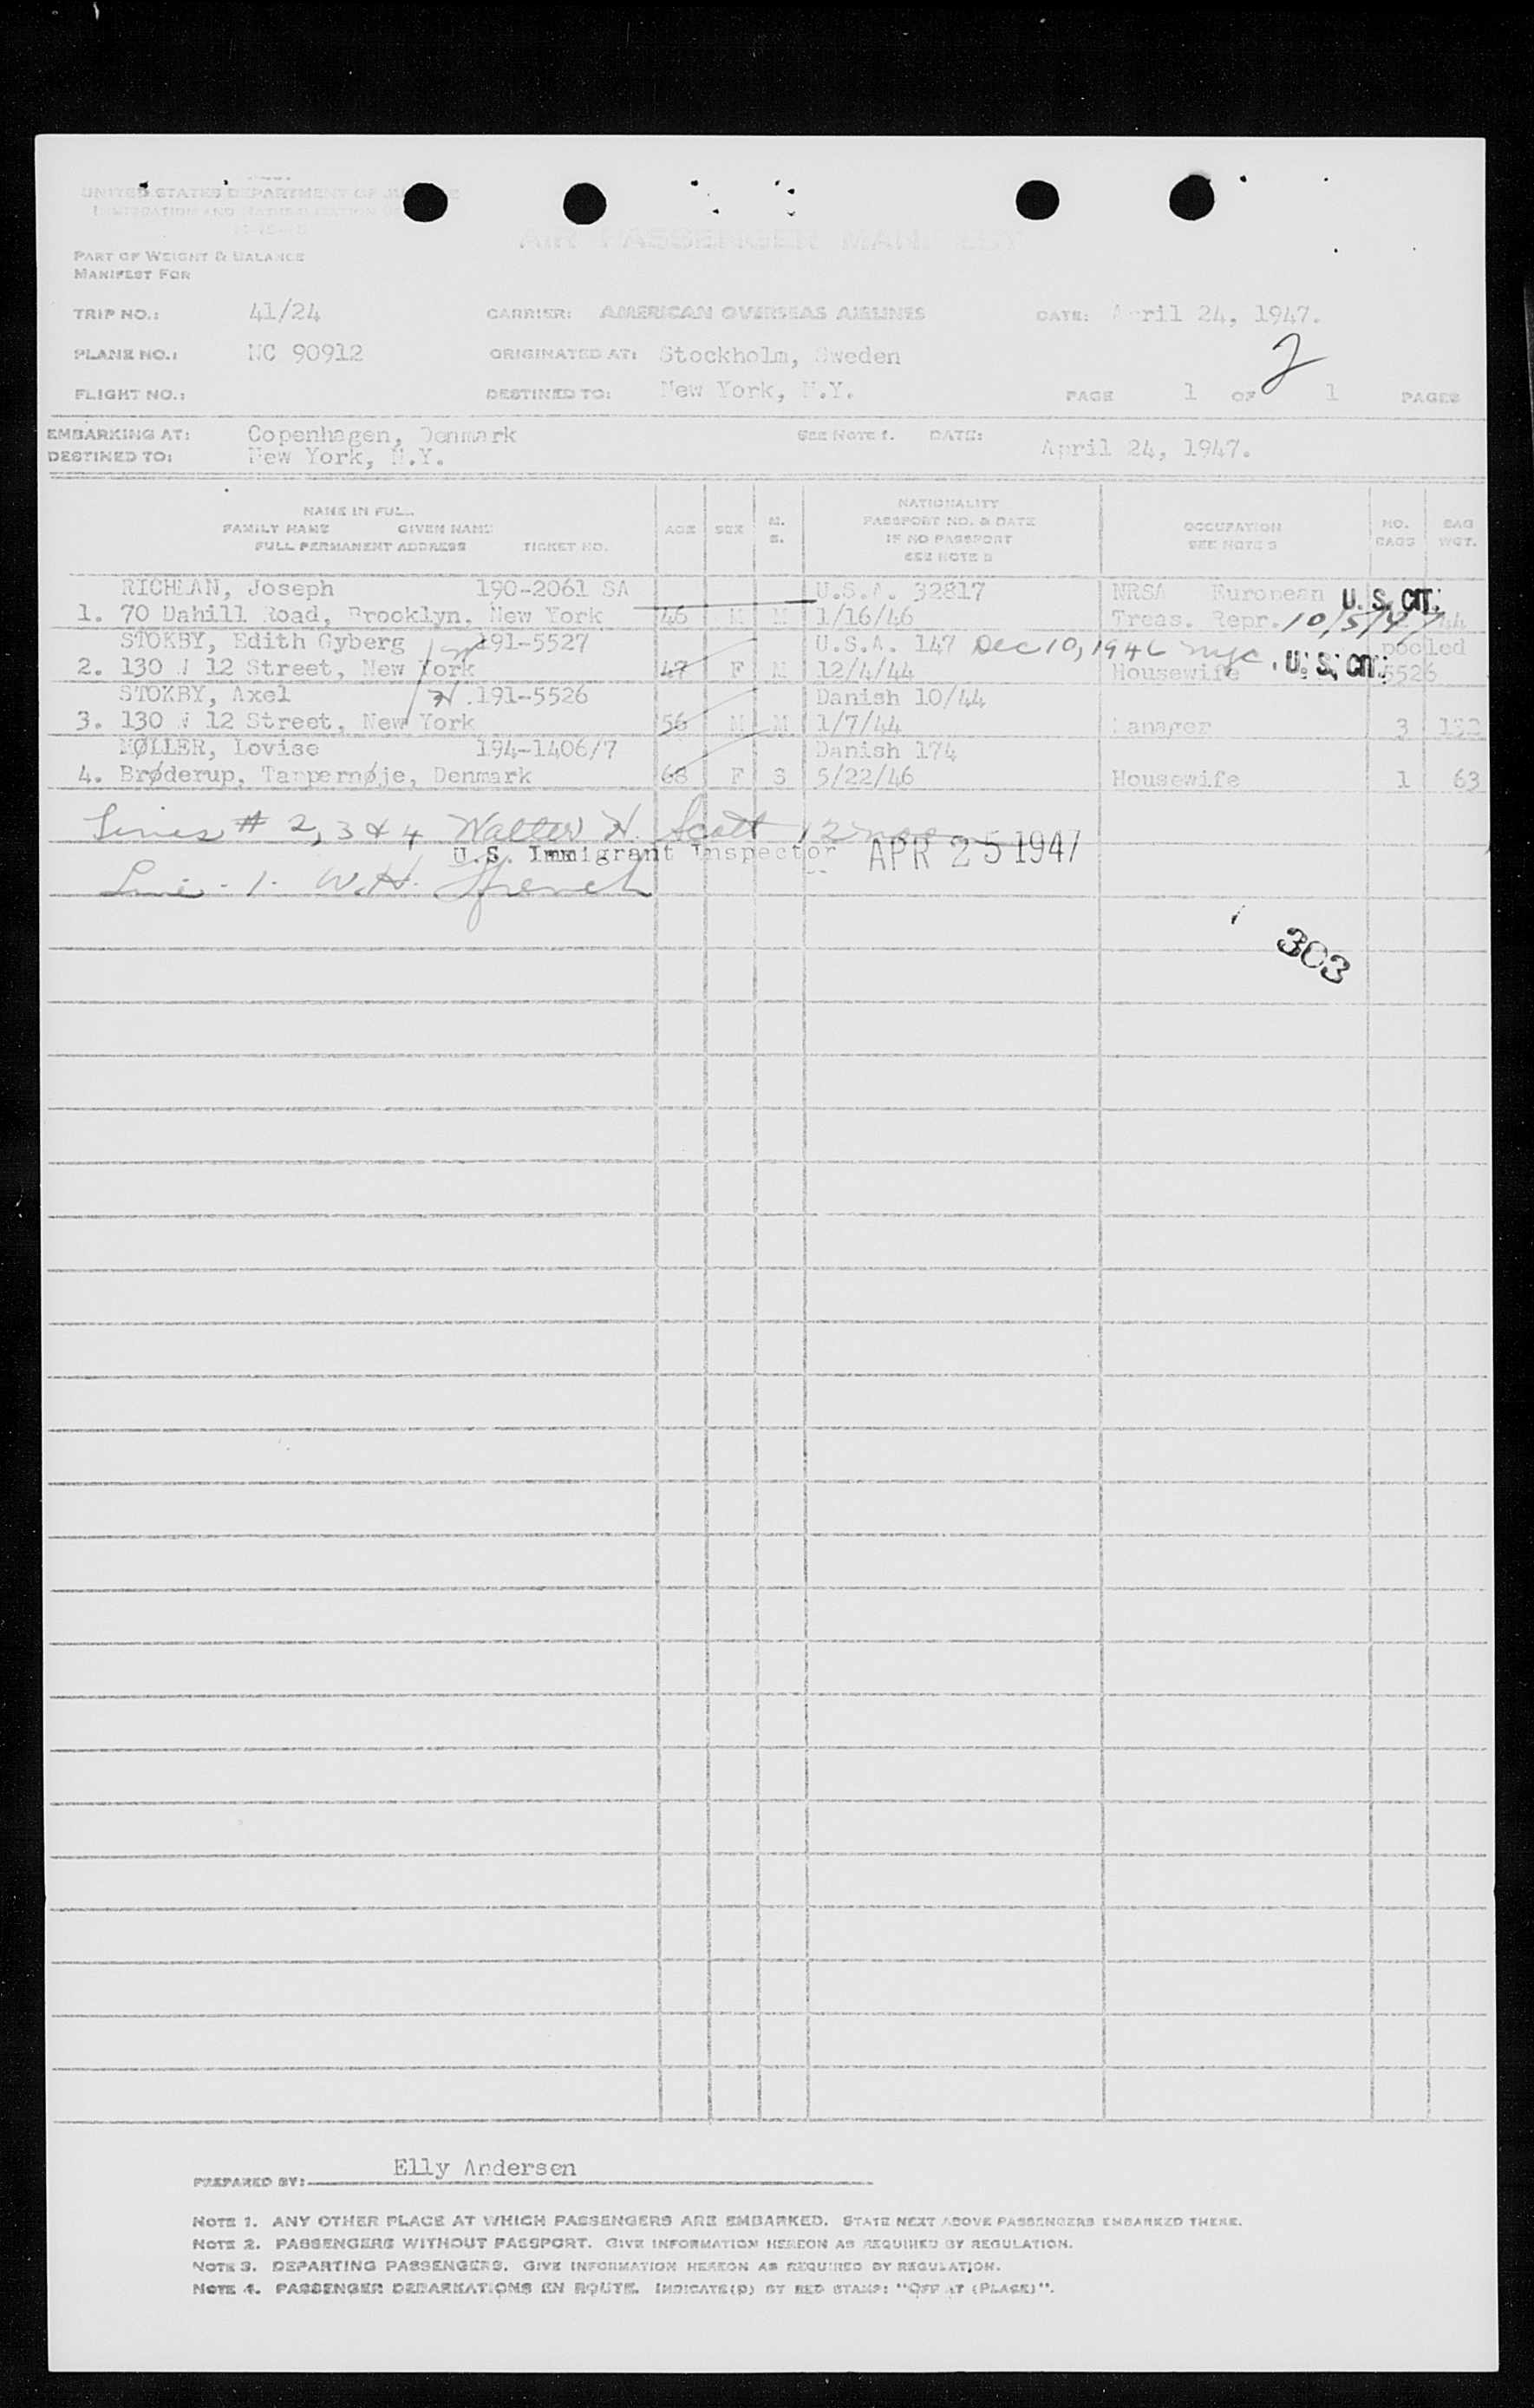 UNITED STATES DEPARTMENT OF
IMMIGRATION AND NATURALIZATION
AIR PASSENGER MANIFEST
PART OF WEIGHT & BALANCE
MANIFEST FOR
TRIP NO.: 41/24 CARRIER: AMERICAN OVERSEAS AIRLINES DATE: April 24, 1947.
PLANE NO.: NC 90912 ORIGINATED AT: Stockholm, Sweden 2
FLIGHT NO.: DESTINED TO: New York, N.Y. PAGE 1 OF 1 PAGES
EMBARKING AT: Copenhagen, Denmark SEE NOTE 1. DATE: April 24, 1947.
DESTINED TO: New York, N.Y.
NAME IN FULL
FAMILY NAME GIVEN NAME
FULL PERMANENT ADDRESS TICKET NO. AGE SEX M. S. NATIONALITY PASSPORT NO. & DATE IF NO PASSPORT SEE NOTE 2 OCCUPATION SEE NOTE 3 NO. BAGS BAG WGT.
RICHMAN, Joseph 190-2061 SA U.S.A. 32817 NRSA European U.S. CIT.
1. 70 Dahill Road, Brooklyn, New York 46 M M 1/16/46 Treas. Repr. 10/5/47 44
STOKBY, Edith Gyberg 191-5527 U.S.A. 147 Dec 10, 1946 nyc pooled
2. 130 W 12 Street, New York 47 F M 12/4/44 Housewife U.S. CIT. 5526
STOKBY, Axel 191-5526 Danish 10/44
3. 130 W 12 Street, New York 56 M M 1/7/44 Manager 3
MØLLER, Lovise 194-1406/7 Danish 174
4. Brøderup, Tappernøje, Denmark 68 F S 5/22/46 Housewife 1 63
Lines # 2, 3 & 4 Walter H. Scott 12 mos
U.S. Immigrant Inspector APR 25 1947
Line - 1 - W.H. French
303
PREPARED BY: Elly Andersen
NOTE 1. ANY OTHER PLACE AT WHICH PASSENGERS ARE EMBARKED. STATE NEXT ABOVE PASSENGERS EMBARKED THERE.
NOTE 2. PASSENGERS WITHOUT PASSPORT. GIVE INFORMATION HEREON AS REQUIRED BY REGULATION.
NOTE 3. DEPARTING PASSENGERS. GIVE INFORMATION HEREON AS REQUIRED BY REGULATION.
NOTE 4. PASSENGER DEBARKATIONS EN ROUTE. INDICATE(D) BY RED STAMP: "OFF AT (PLACE)".